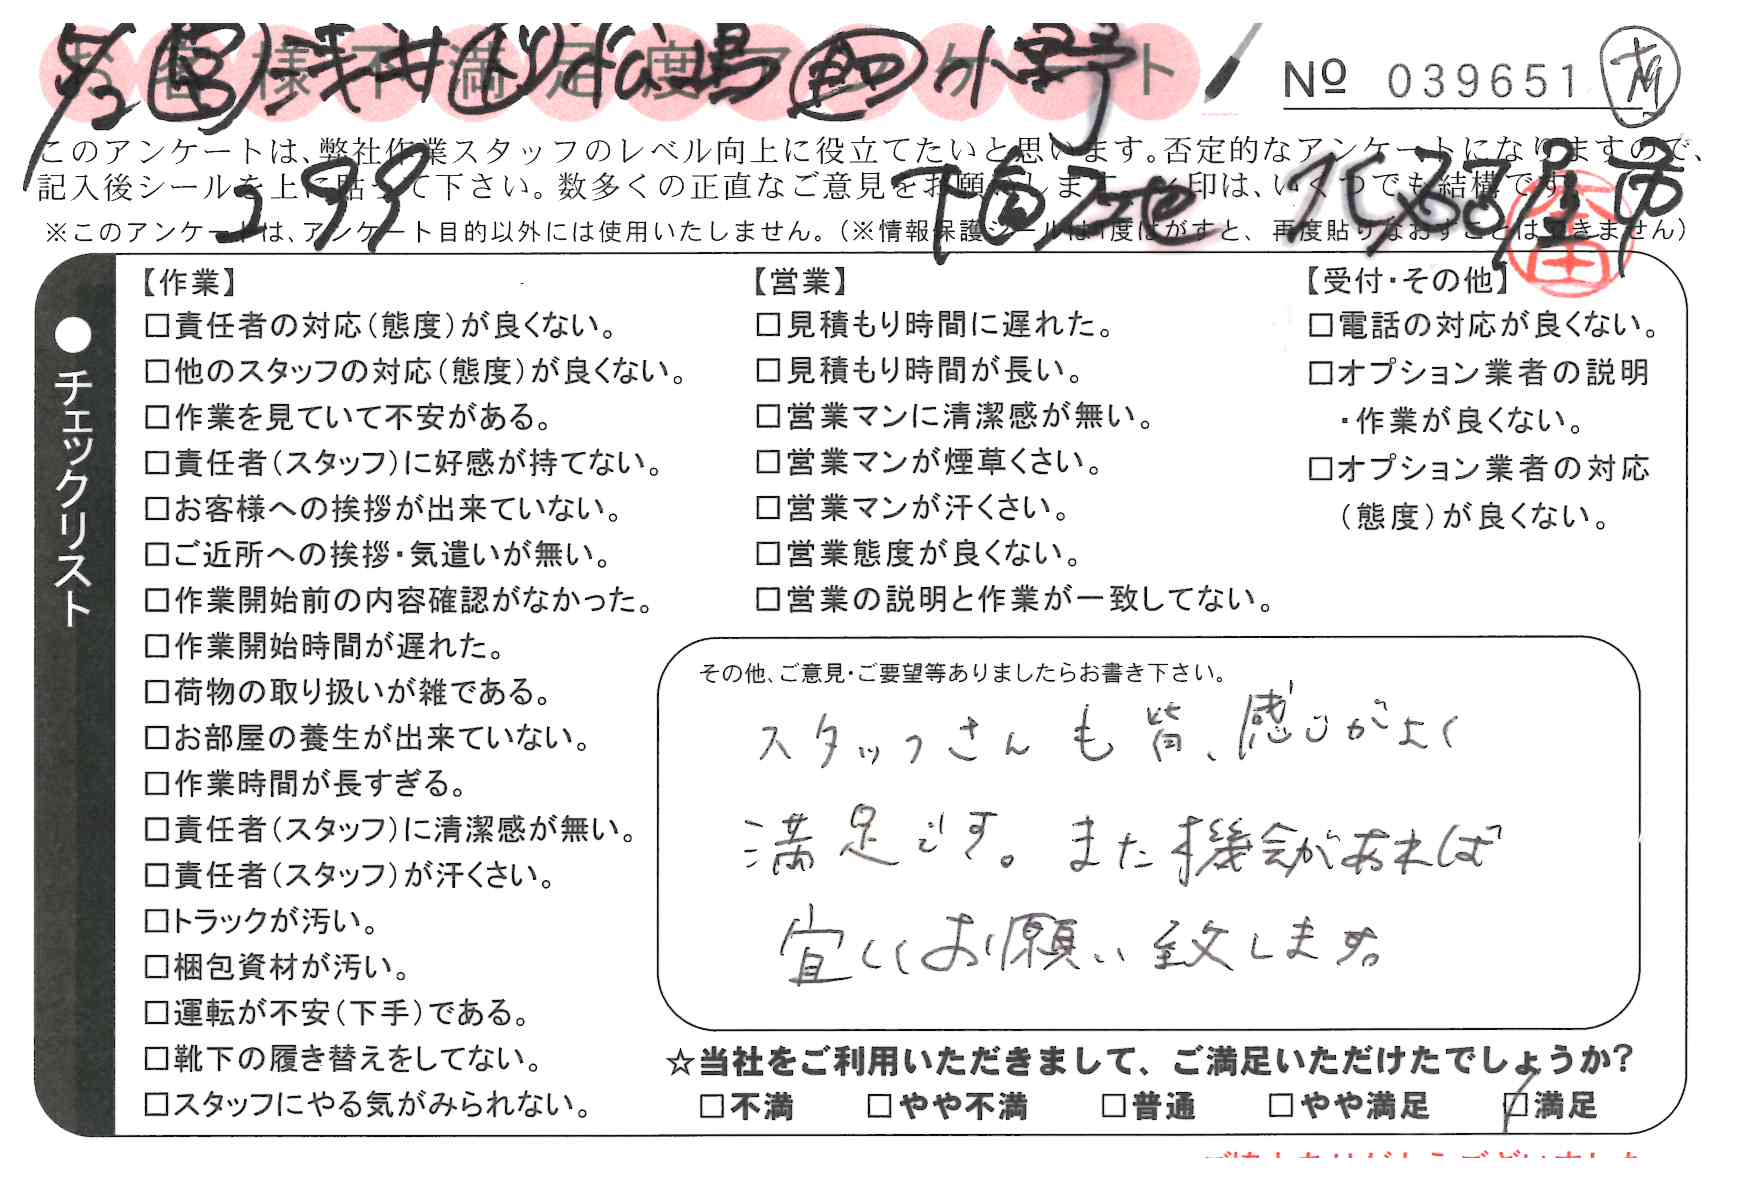 お客様不満足度アンケート
No 039651
このアンケートは、弊社作業スタッフのレベル向上に役立てたいと思います。否定的なアンケートになりますので、
記入後シールを上に貼って下さい。数多くの正直なご意見をお願いします。✓印は、いくつでも結構です。
※このアンケートは、アンケート目的以外には使用いたしません。（※情報保護シールは1度はがすと、再度貼りなおすことはできません）
299
●チェックリスト
【作業】
□責任者の対応（態度）が良くない。
□他のスタッフの対応（態度）が良くない。
□作業を見ていて不安がある。
□責任者（スタッフ）に好感が持てない。
□お客様への挨拶が出来ていない。
□ご近所への挨拶・気遣いが無い。
□作業開始前の内容確認がなかった。
□作業開始時間が遅れた。
□荷物の取り扱いが雑である。
□お部屋の養生が出来ていない。
□作業時間が長すぎる。
□責任者（スタッフ）に清潔感が無い。
□責任者（スタッフ）が汗くさい。
□トラックが汚い。
□梱包資材が汚い。
□運転が不安（下手）である。
□靴下の履き替えをしてない。
□スタッフにやる気がみられない。
【営業】
□見積もり時間に遅れた。
□見積もり時間が長い。
□営業マンに清潔感が無い。
□営業マンが煙草くさい。
□営業マンが汗くさい。
□営業態度が良くない。
□営業の説明と作業が一致してない。
【受付・その他】
□電話の対応が良くない。
□オプション業者の説明
・作業が良くない。
□オプション業者の対応
（態度）が良くない。
その他、ご意見・ご要望等ありましたらお書き下さい。
スタッフさんも皆、感じがよく
満足です。また機会があれば
宜しくお願い致します。
☆当社をご利用いただきまして、ご満足いただけたでしょうか？
□不満 □やや不満 □普通 □やや満足 □満足